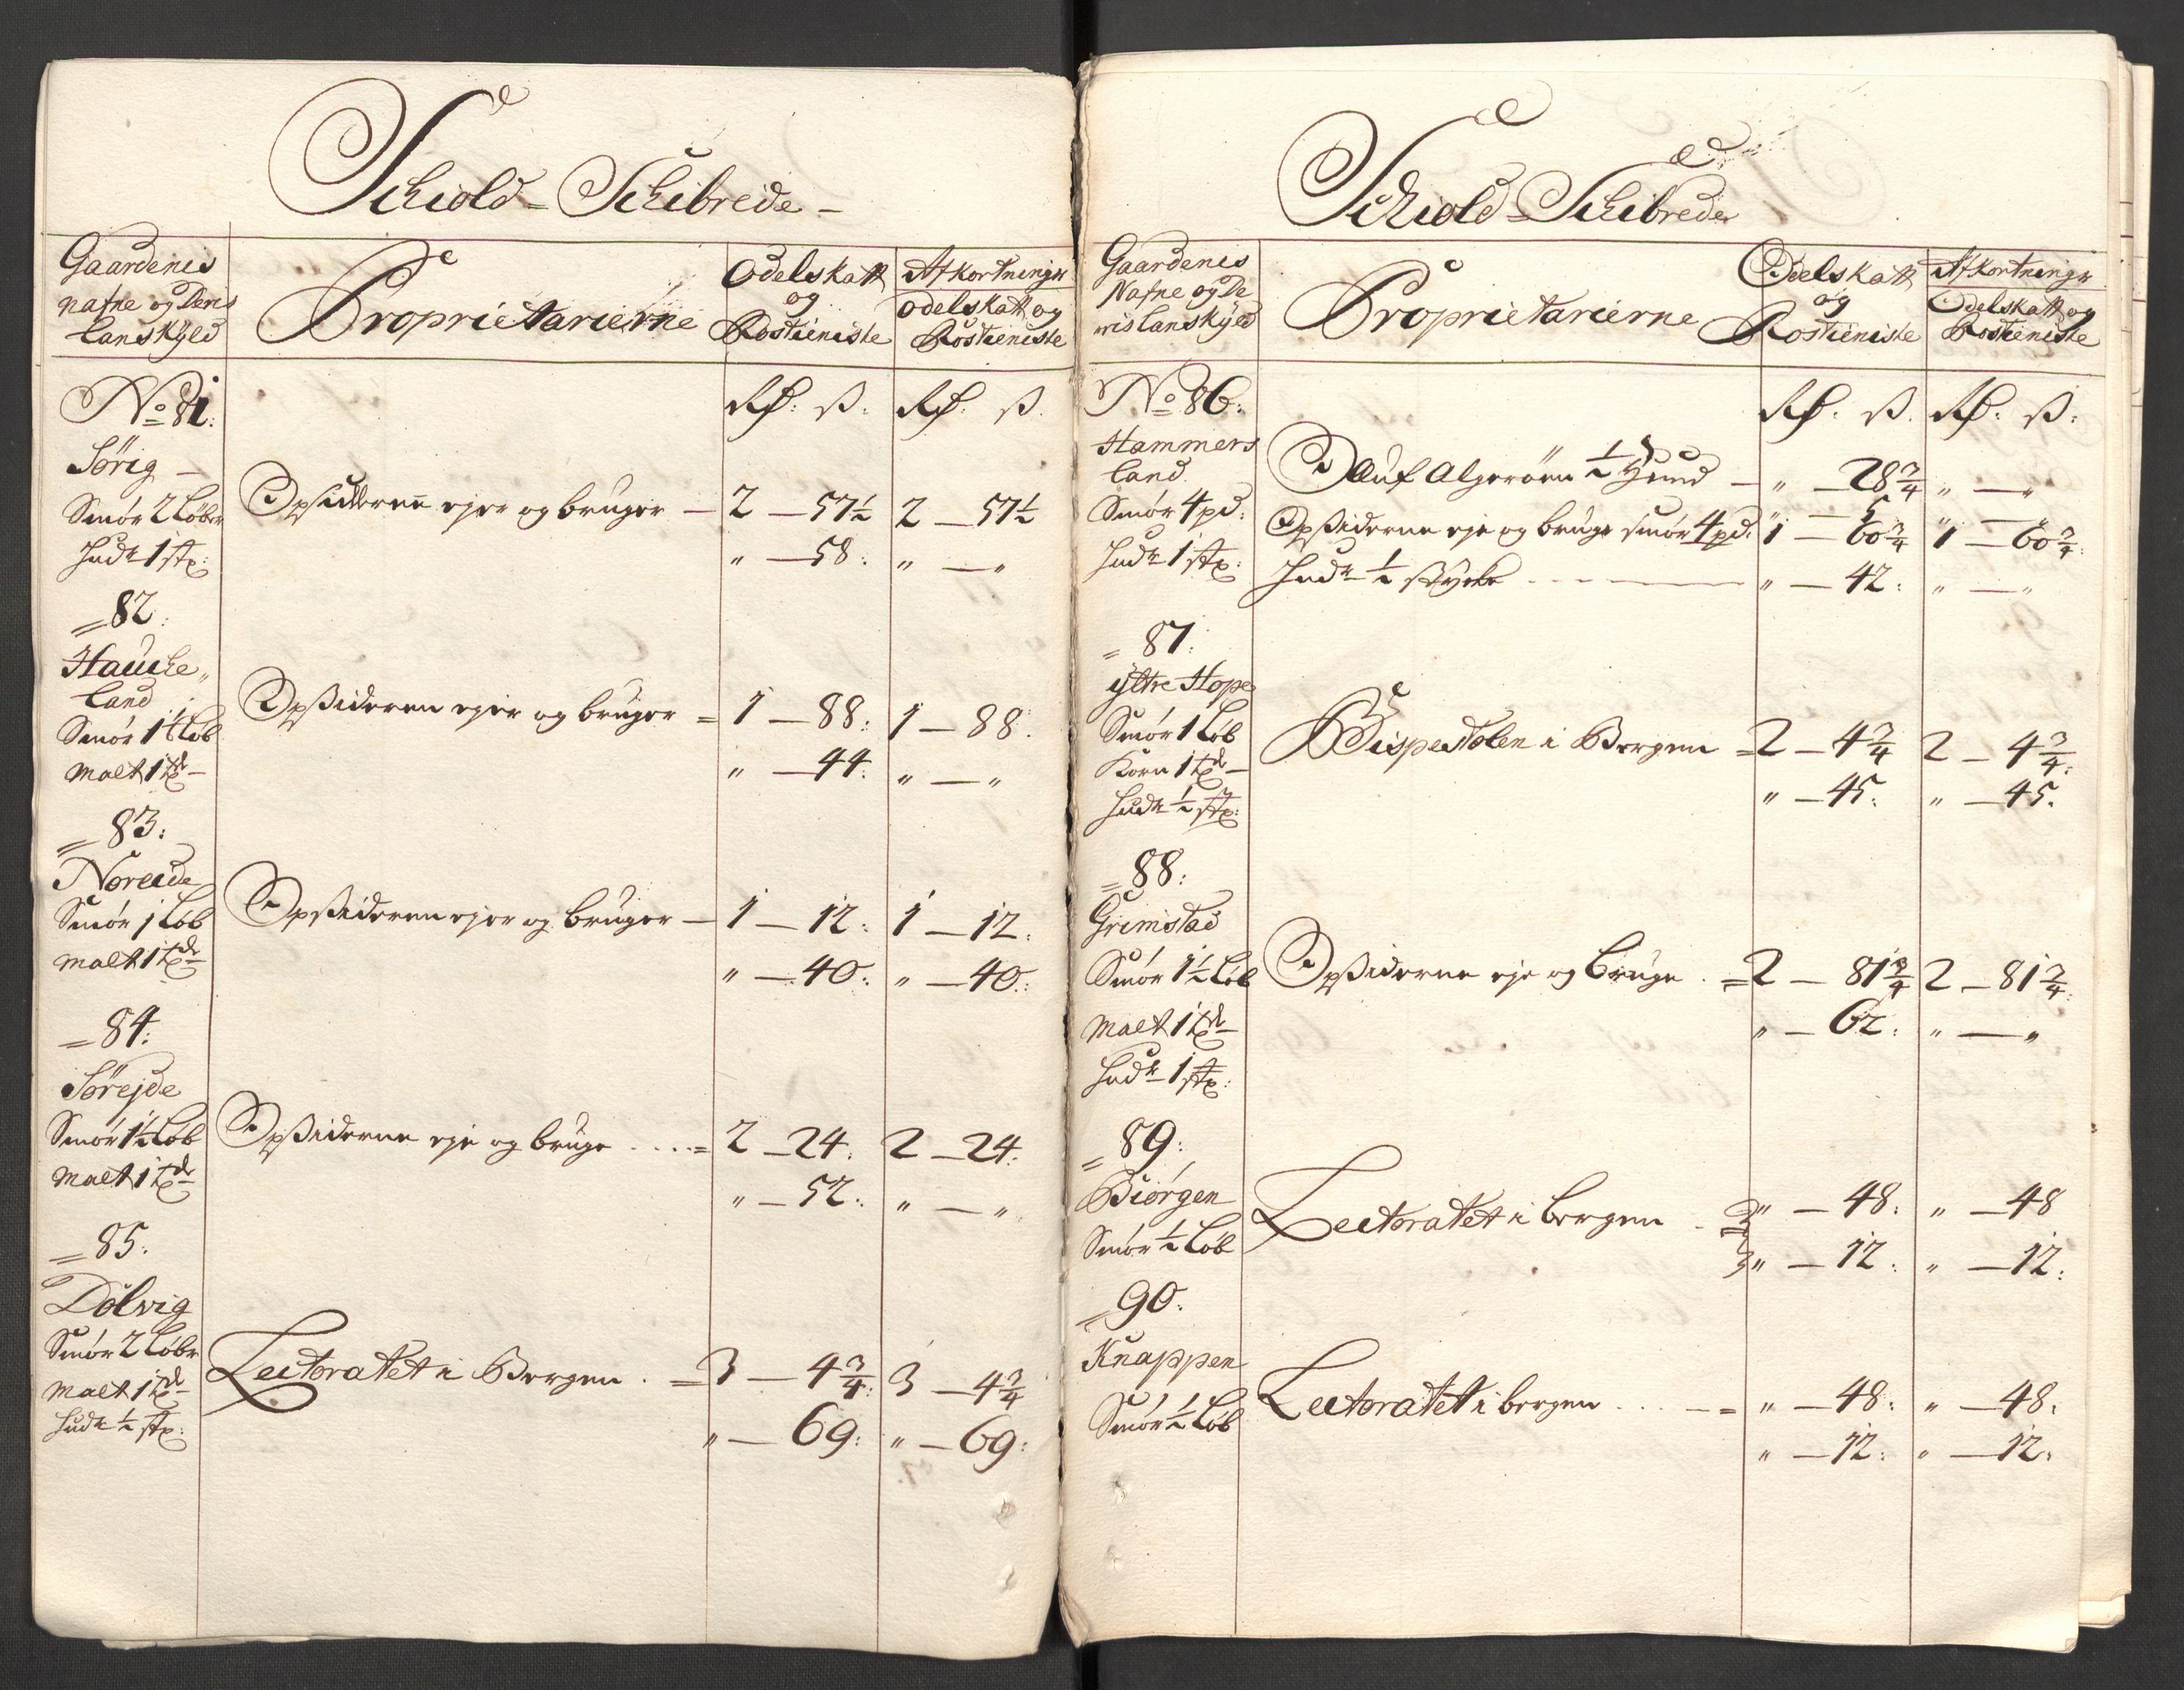 Schiold = Schibrede –
Gaardenis nafne og Deris Landskyld
Proprietarierne
Odelskatt og Rostieniste
Afkortninger Odelskatt og Rostieniste
Rd: ß: Rd: ß.
No 81:
Sörig –
Smör 2 Löber
Hudr 1 stk:
Opsidderne ejer og bruger – 2 – 57½ 2 – 57½
" – 58: " – "
= 82:
Haucke,,
land
Smör 1½ Löb
Malt 1 td –
Opsideren ejer og bruger = 1 – 88: 1 – 88:
" – 44: " – "
= 83:
Noreide
Smör 1 Löb
Malt 1 td –
Opsideren ejer og bruger – 1 – 12: 1 – 12:
" – 40: " – 40:
= 84:
Sörejde
Smör 1½ Löb
Malt 1 td
Opsiderne eje og bruge .... = 2 – 24: 2 – 24:
" – 52: " – "
= 85:
Dolvig
Smör 2 Löbr
Malt 1 td –
Hudr ½ stk:
Lectoratet i Bergen . = 3 – 4¾: 3 – 4¾
" – 69: " – 69:
Schiold = Schibrede
Gaardenis Nafne og De ris Lanskyld
Proprietarierne
Odelskatt og Rostieniste
Afkortninger Odelskatt og Rostieniste
Rd: ß. Rd: ß:
No 86:
Hammers
land
Smör 4 pd:
Hudr 1 stk:
Oluf Algeröen ½ Hund – " – 28¾ " – "
" – 5 " – "
Opsiderne eje og bruge smör 4 pd: 1 – 60¾ 1 – 60¾:
Hudr ½ stycke – " – 42: " – "
= 87:
yttre Hope
Smör 1 Löb
Korn 1 td –
Hudr ½ stk:
Bispestolen i Bergen = 2 – 4¾ 2 – 4¾:
" – 45: " – 45.
= 88:
Grimstad
Smör 1½ Löb
Malt 1 td –
Hudr 1 stk:
Opsiderne eje og bruge . = 2 – 81¾ 2 – 81¾:
" – 62: " – "
= 89:
Biörgen
Smör ½ Löb
Lectoratet i bergen . " – 48: " – 48
" – 12: " – 12:
= 90:
Knappen
Smör ½ Löb
Lectoratet i bergen ... – = " – 48: " – 48:
" – 12: " – 12: